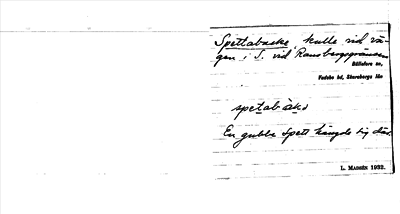 Spettabacke kulle vid vä-
gen i S. vid Ransbergsgränsen
Bällefors sn,
Vadsbo hd, Skaraborgs län
spetabàkɘ
En gubbe Spett hängde sig där.
L. MADSÉN 1932.